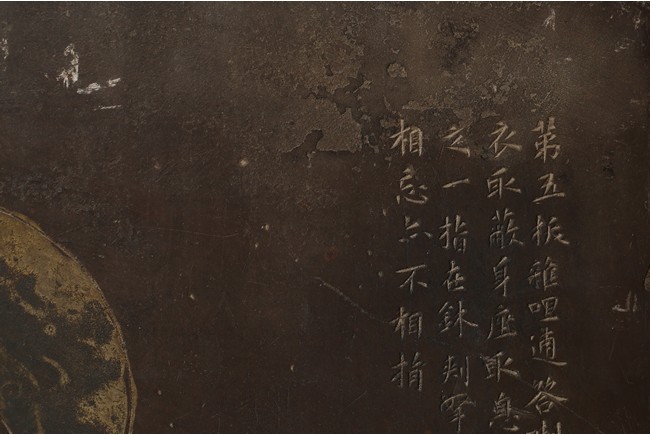 第五拔雜哩逋答
衣取蔽身座取息
一指在鉢刺
相忘亦不相捐